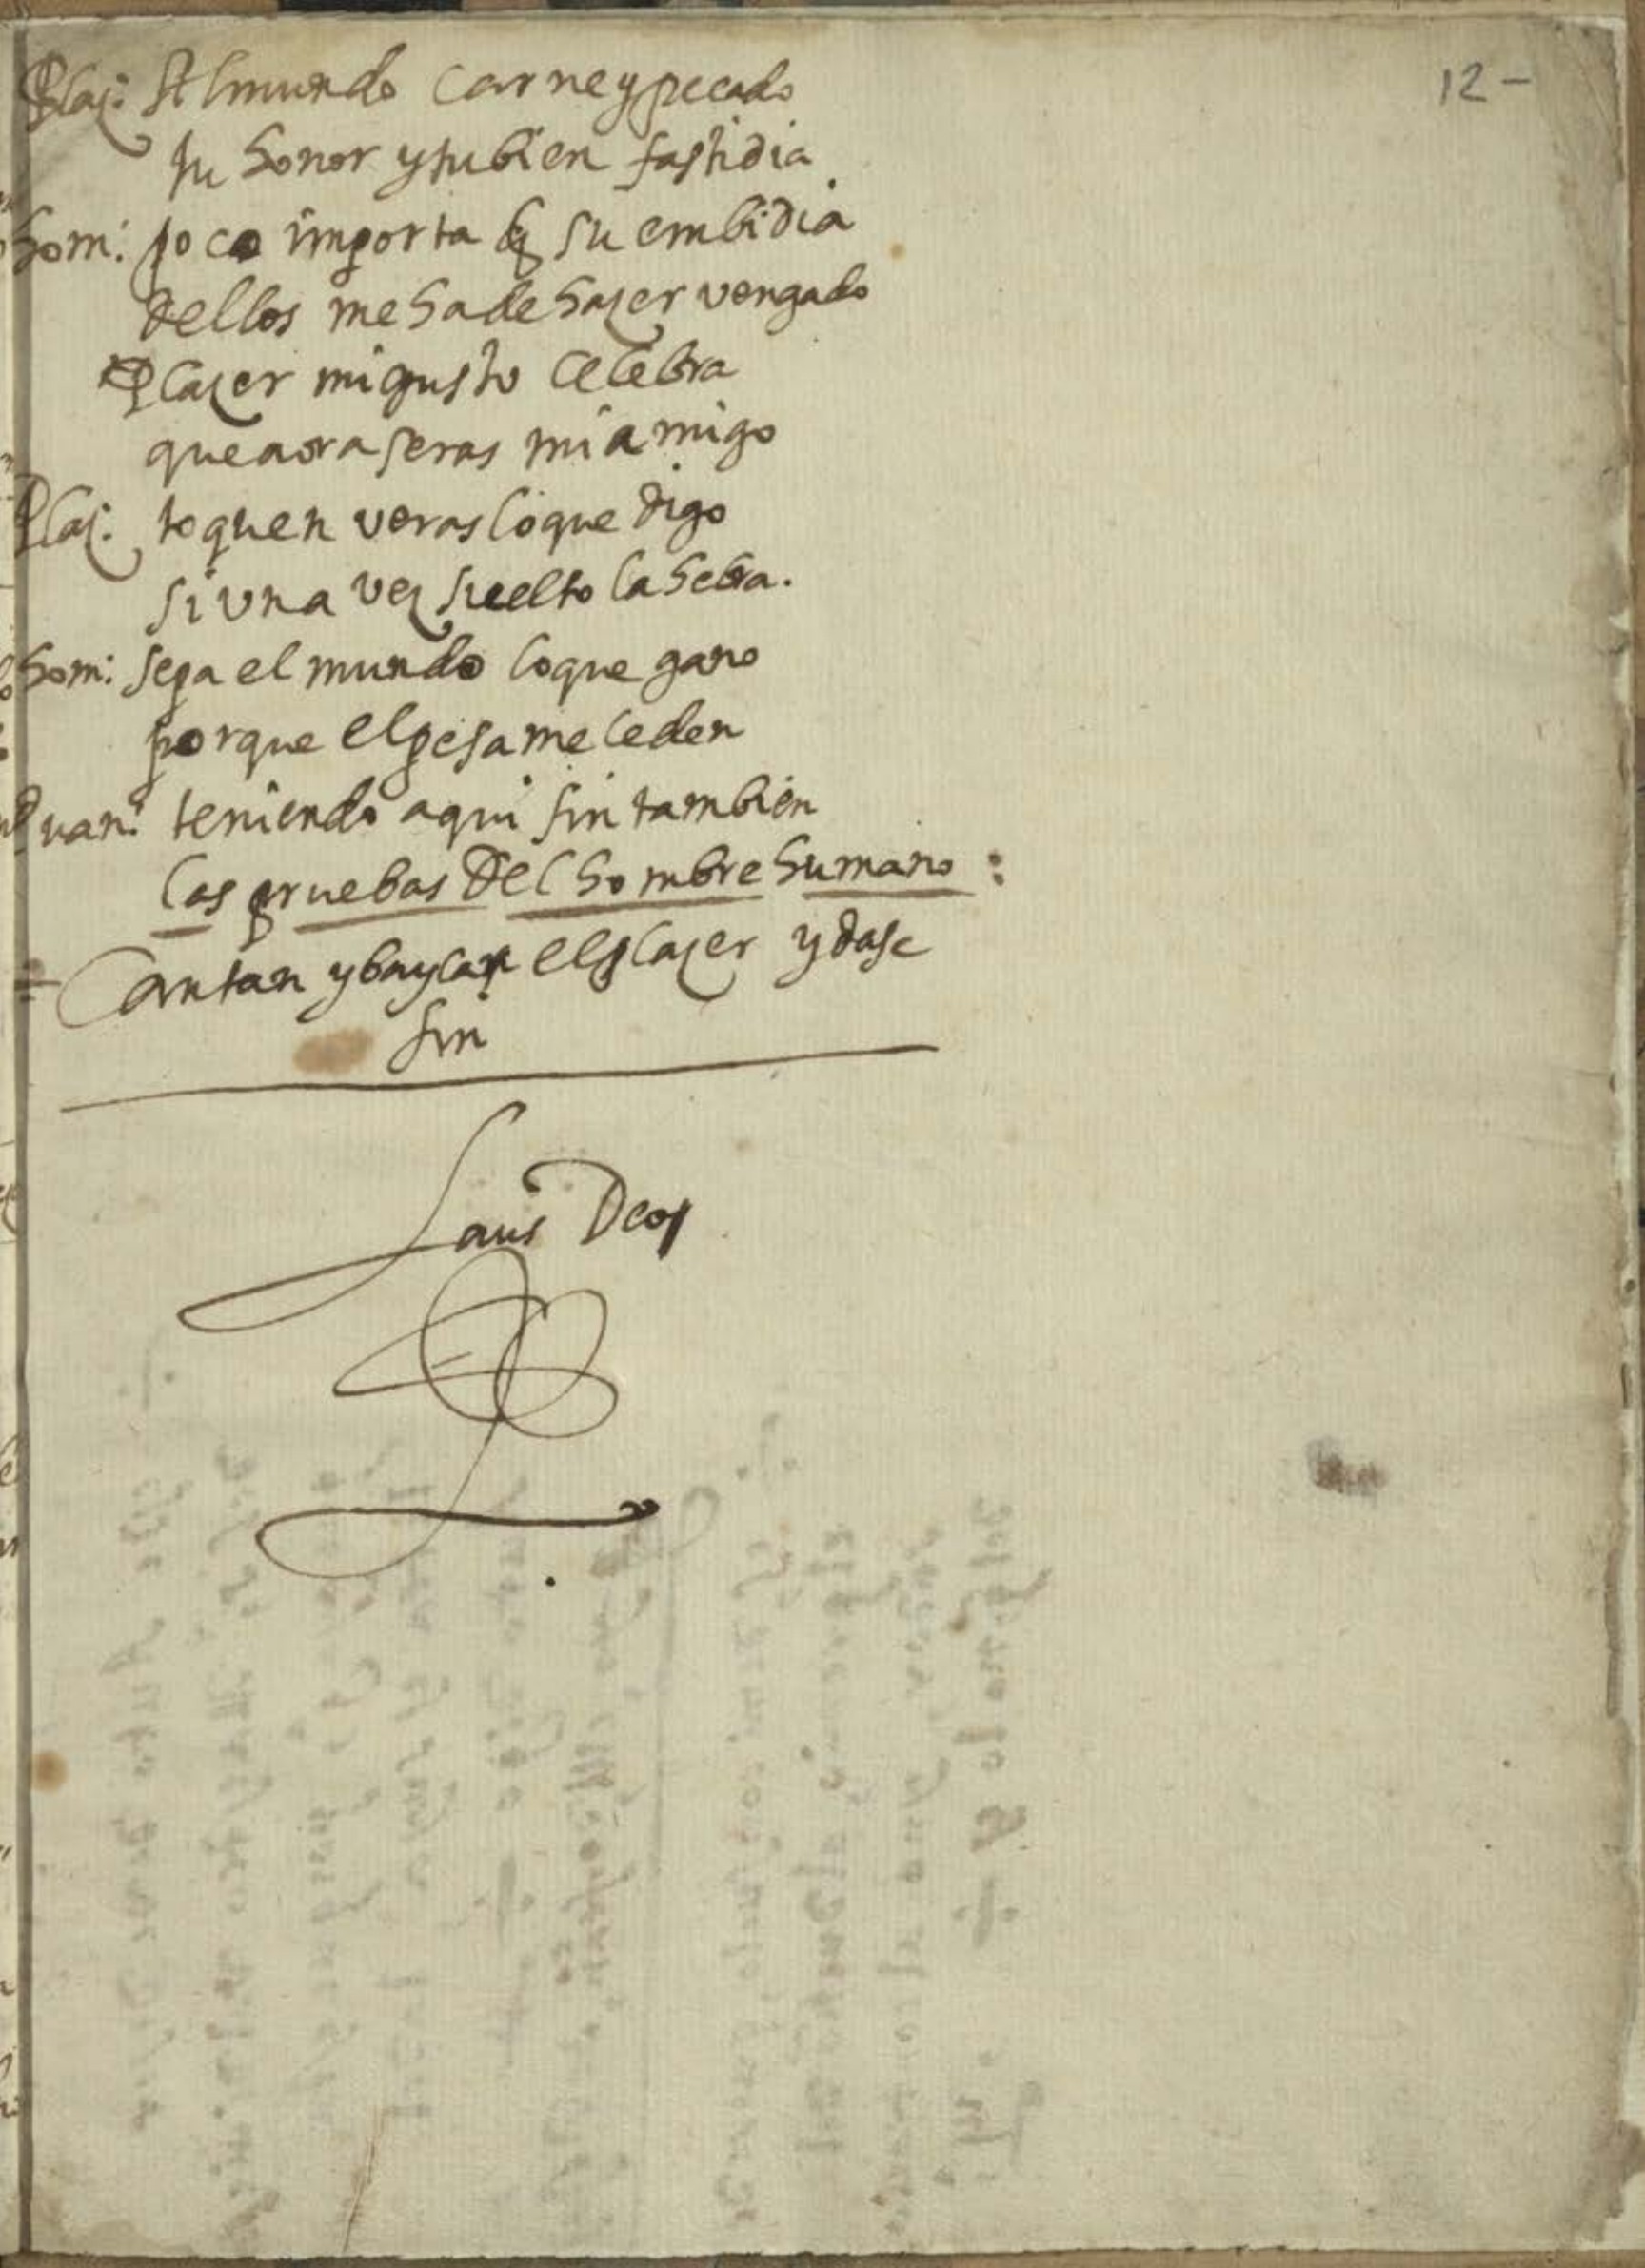 12-
Plaz: Al mundo carne y pecado
tu honor y tu bien fastidia
hom: poco importa q su embidia
dellos me ha de hazer vengado
Plazer mi gusto celebra
que aora seras mi amigo
Plaz: toquen veras lo que digo
si una vez suelto la hebra.
hom: sepa el mundo lo que gano
porque el pesame le den
teniendo aqui fin tambien
las pruebas del hombre humano:
Cantan y baylan el plazer y dase
fin
Laus Deo